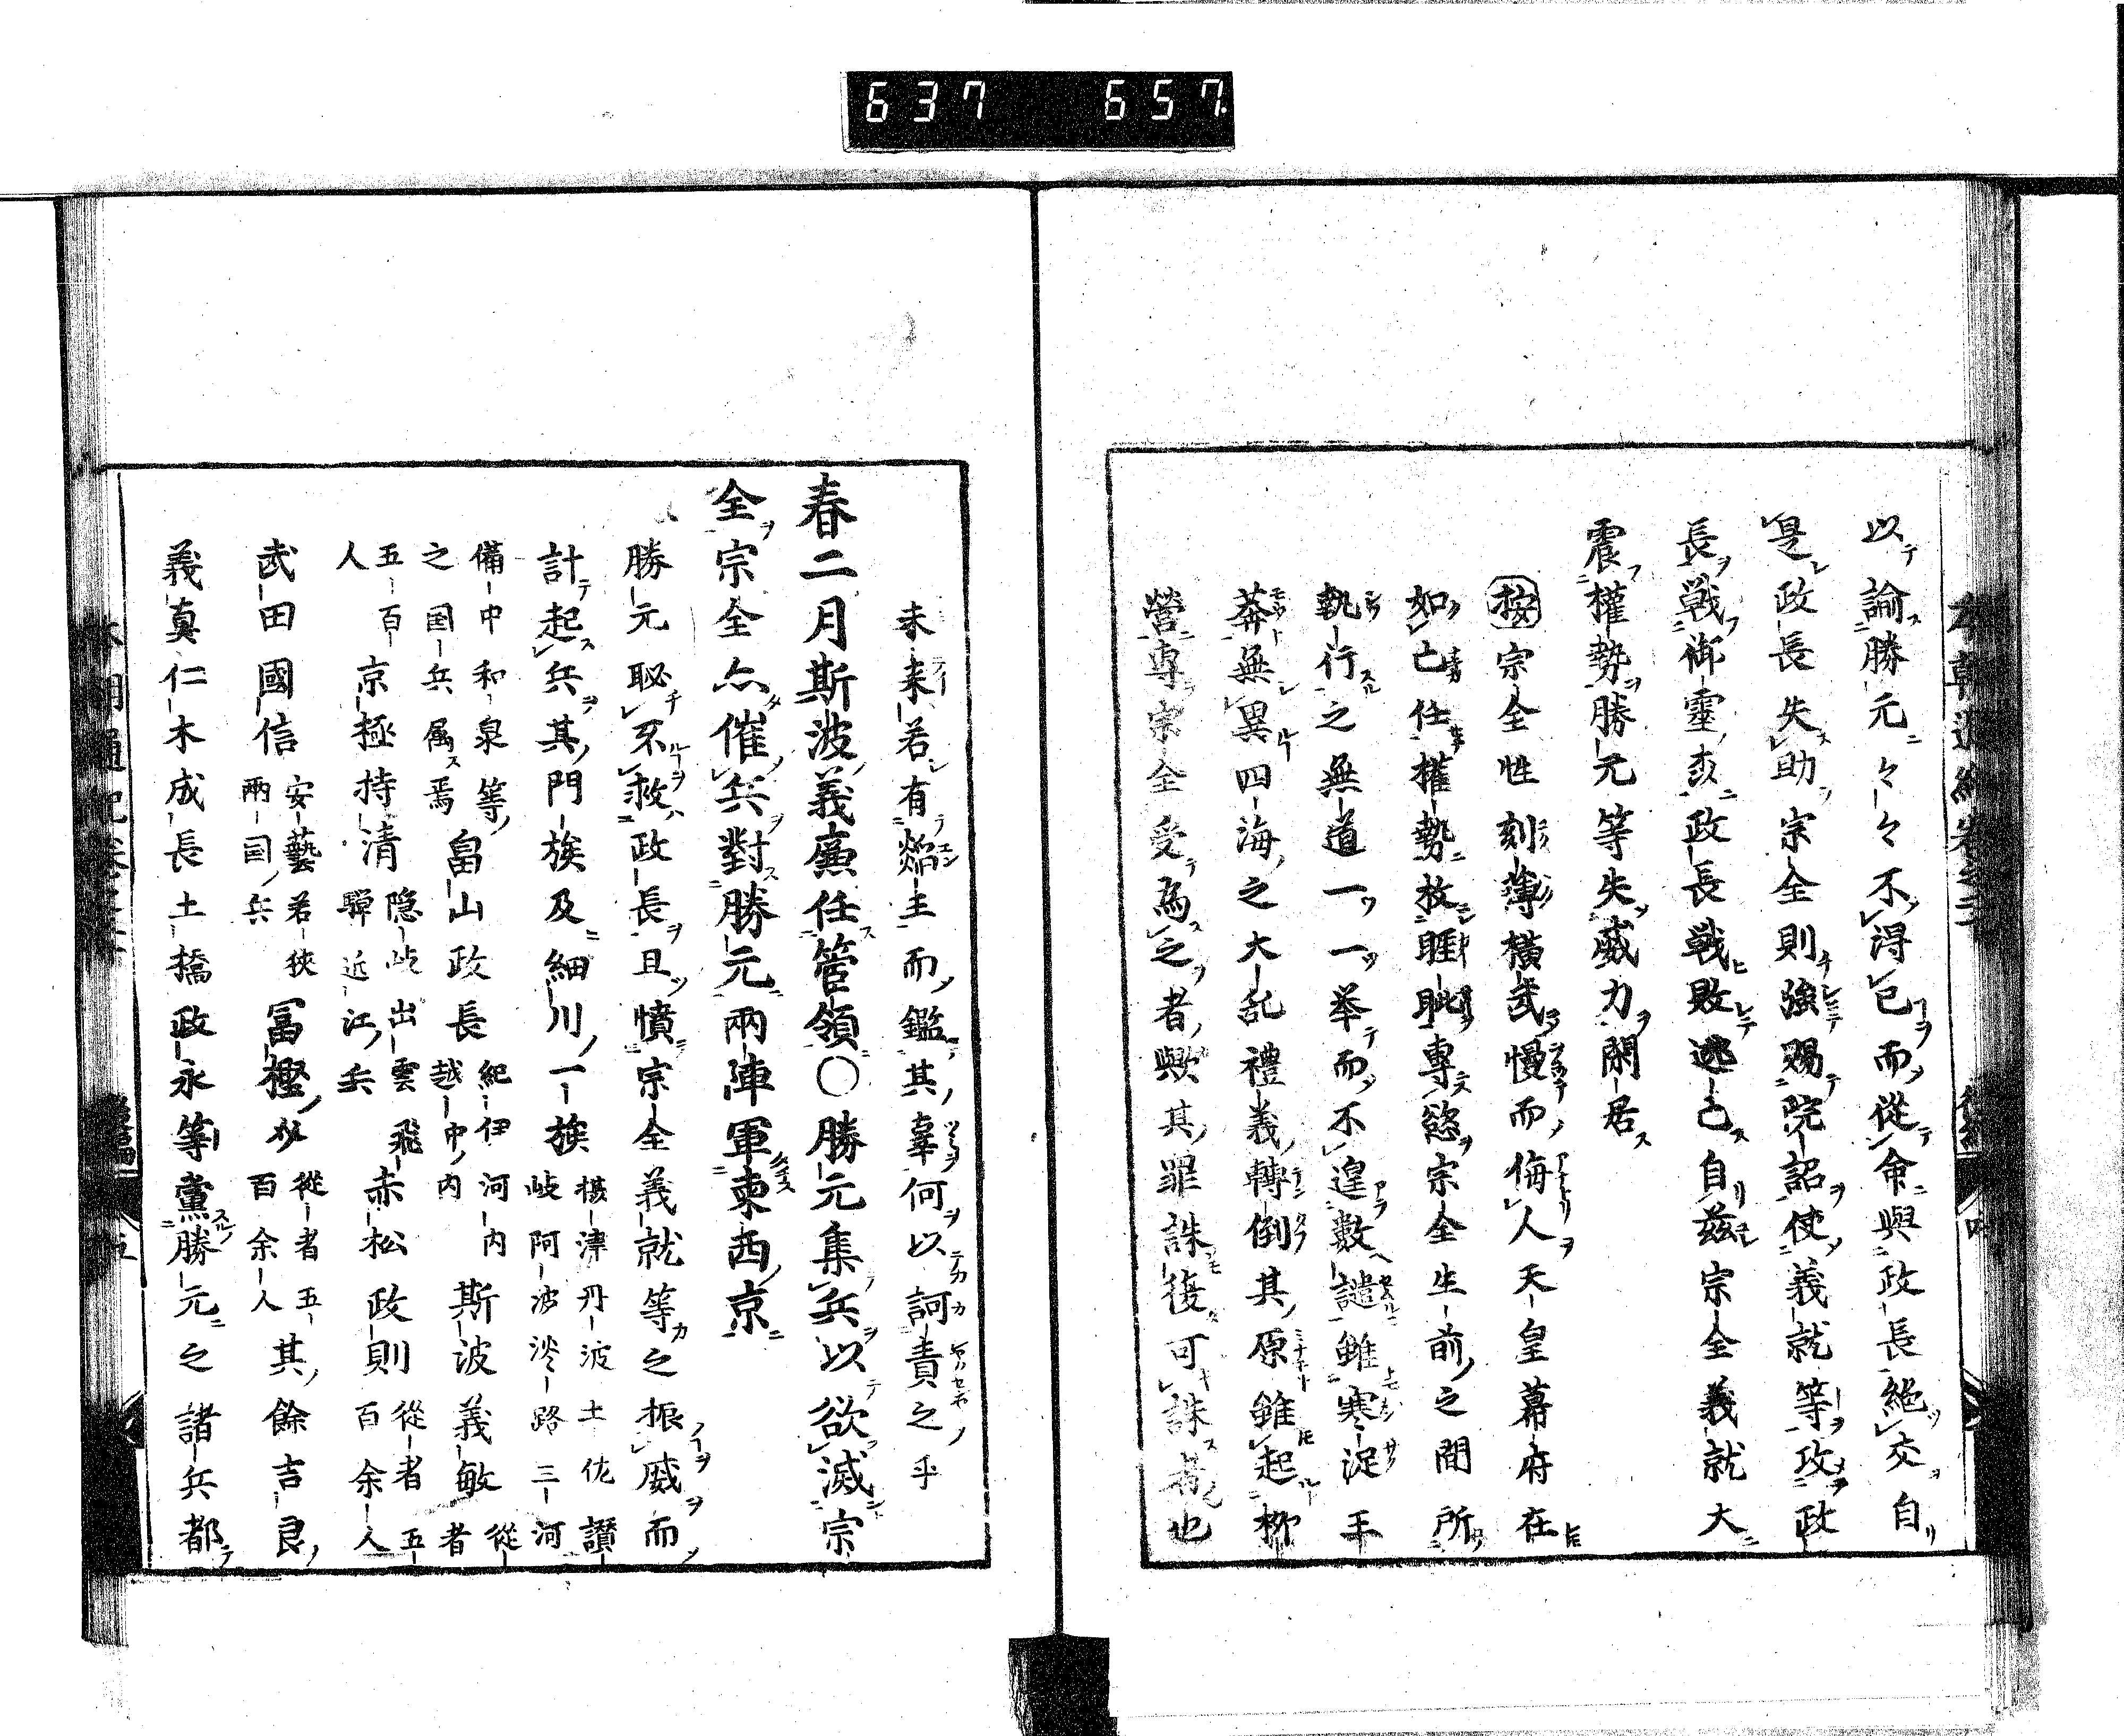 637 657
以諭勝元々々不得已而從命與政長絶交自
是政長失助宗全則強賜院詔使義就等攻政
長戦御霊森政長戦敗逃亡自茲宗全義就大
震權勢勝元等失威力閑居
按宗全性刻薄横武慢而侮人天皇幕府在
如亡任權勢放睚眦專慾宗全生前之間所
執行之無道一一举而不遑數譴雖寒浞王
莽無異四海之大乱禮義轉倒其原雖起
營專宗全受為之者歟其罪誅後可誅者也
未来若有焰王而鑑其辜何以訶責之乎
春二月斯波義廉任管領○勝元集兵以欲滅宗
全宗全亦催兵對勝元兩陣軍東西京
勝元恥不救政長且憤宗全義就等之振威而
計起兵其門族及細川一族摂津丹波土佐讃
岐阿波淡路三河
備中和泉等
之国兵属焉畠山政長紀伊河内
越中内斯波義敏從
者
五百
人京極持清隠岐出雲飛
騨近江兵赤松政則從者五
百余人
武田國信安藝若狹
兩国兵冨樫從者五
百余人其餘吉良
義真仁木成長土橋政永等黨勝元之諸兵都